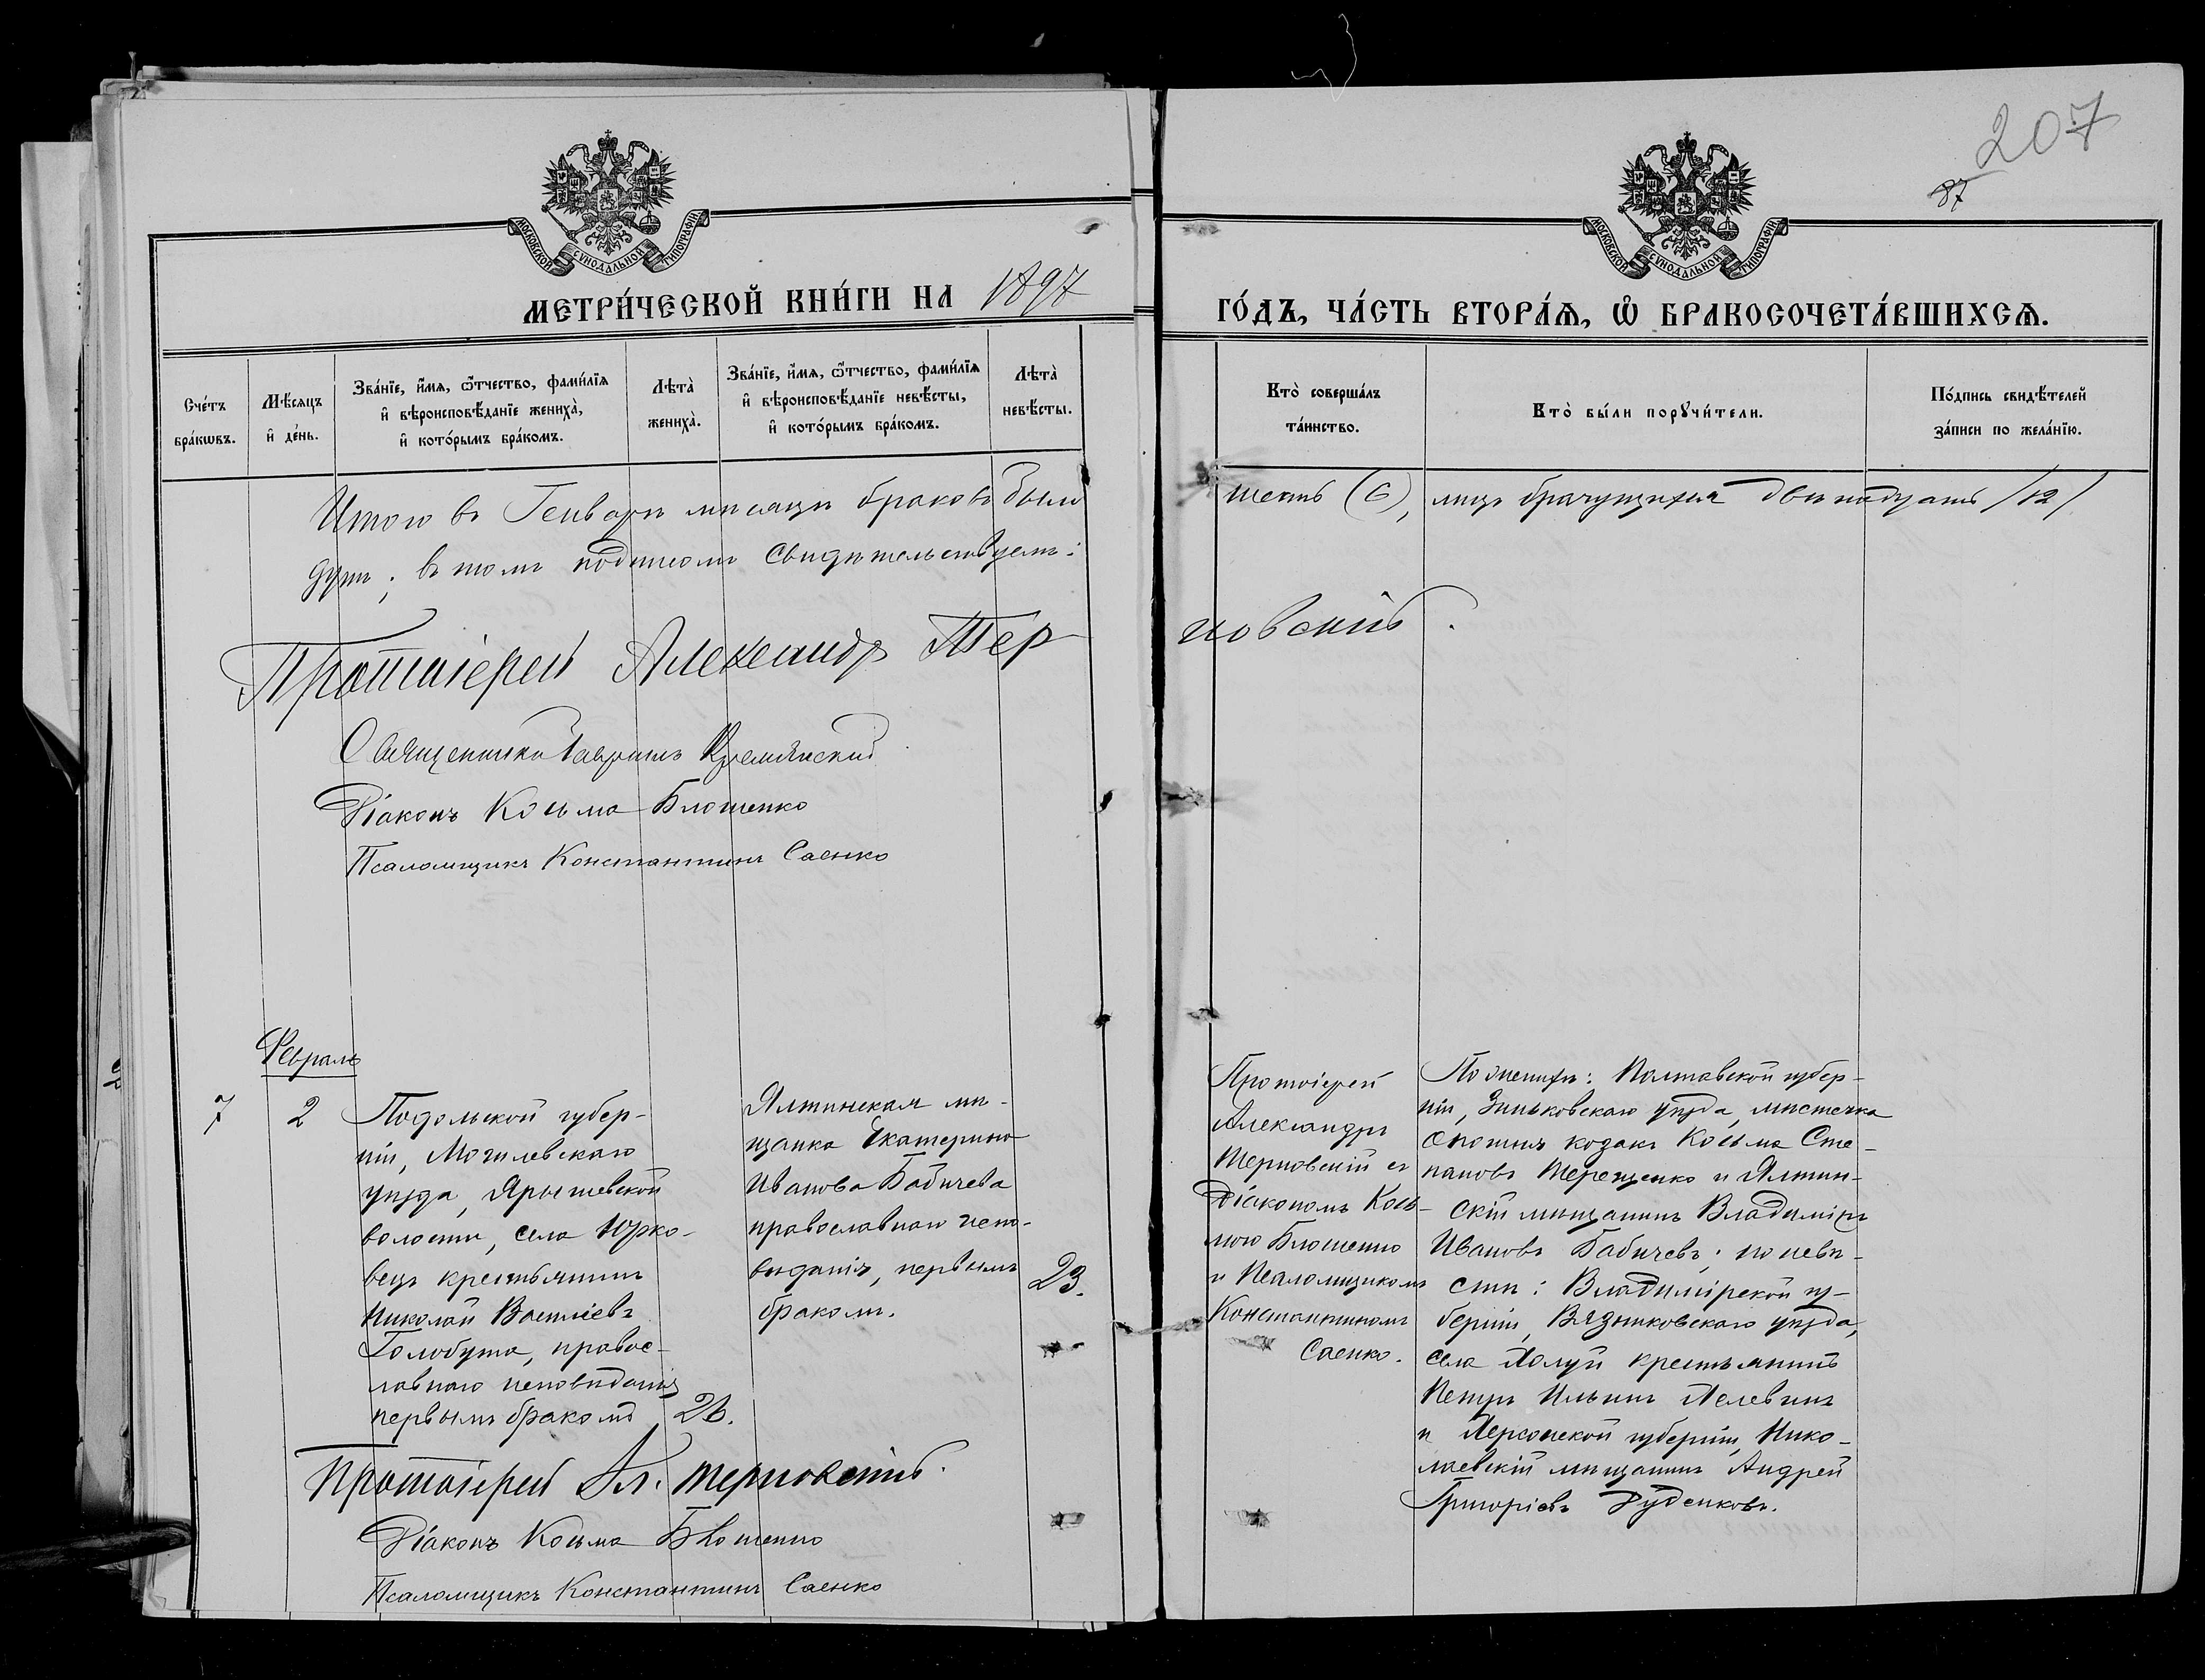 207
87
МОСКОВСКОЙ СѴНОДАЛЬНОЙ ТИПОГРАФІИ
МОСКОВСКОЙ СѴНОДАЛЬНОЙ ТИПОГРАФІИ
МЕТРИ́ЧЕСКОЙ КНИ́ГИ НА 1897
ГО́ДЪ, ЧА́СТЬ ВТОРА́Ѧ, Ѡ҆ БРАКОСОЧЕТА́ВШИХСѦ.
Сче́тъ
бра́кѡвъ.
Мѣ́сяцъ
и҆ де́нь.
Зва́нїе, и҆́мѧ, ѻ҆́тчество, фами́лїѧ
и҆ вѣроисповѣ́данїе жениха̀,
и҆ кото́рымъ бра́комъ.
Лѣта̀
жениха̀.
Зва́нїе, и҆́мѧ, ѻ҆́тчество, фами́лїѧ
и҆ вѣроисповѣ́данїе невѣ́сты,
и҆ кото́рымъ бра́комъ.
Лѣта̀
невѣ́сты.
Кто̀ соверша́лъ
та́инство.
Кто̀ бы́ли порꙋчи́тели.
По́дпись свидѣ́телей
за́писи по жела́нїю.
Итого въ Генварѣ мѣсяцѣ браковъ было
шесть (6), лицъ брачущихся двѣнадцать /12/
душъ; въ томъ подписомъ свидѣтельствуемъ:
Протоіерей Александръ Тер
новскій.
Священникъ Гавріилъ Кремянскій
Діаконъ Косьма Блошенко
Псаломщикъ Константинъ Саенко
Февраль
7
2
Подольской губер-
ніи, Могилевскаго
уѣзда, Ярышевской
волости, села Юрко-
вецъ крестьянинъ
Николай Василіевъ
Голобута, правос-
лавнаго исповѣданія
первымъ бракомъ
26.
Ялтинская мѣ-
щанка Екатерина
Иванова Бабичева
православнаго испо-
вѣданія, первымъ
бракомъ.
23.
Протоіерей
Александръ
Терновскій съ
Діакономъ Кось-
мою Блошенко
и Псаломщикомъ
Константиномъ
Саенко.
По женихѣ: Полтавской губер-
ніи, Зиньковскаго уѣзда, мѣстечка
Опошня козакъ Косьма Сте-
пановъ Терещенко и Ялтин-
скій мѣщанинъ Владиміръ
Ивановъ Бабичевъ; по невѣ-
стѣ: Владимірской гу-
берніи, Вязниковскаго уѣзда,
села Холуй крестьянинъ
Петръ Ильинъ Лелевинъ
и Херсонской губерніи, Нико-
лаевскій мѣщанинъ Андрей
Григоріевъ Руденковъ.
Протоіерей Ал. Терновскій.
Діаконъ Косьма Блошенко
Псаломщикъ Константинъ Саенко